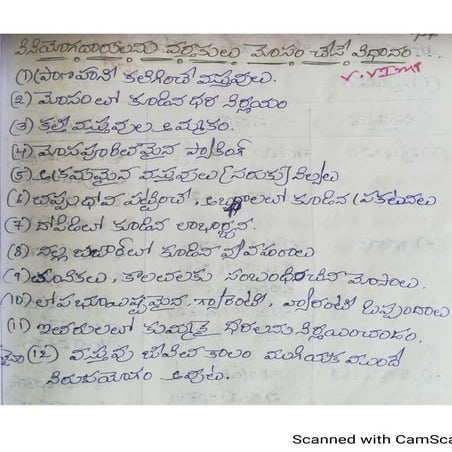 వినియోగదారులను వర్తకులు మోసం చేసే విధానం.
V.V.Imp
(1) ప్రాణహాని కలిగించే వస్తువులు.
(2) మోసంలో కూడిన ధర నిర్ణయం
(3) కల్తీ వస్తువుల అమ్మకం.
(4) మోసపూరితమైన ప్యాకింగ్
(5) అక్రమమైన వస్తువులు (సరుకు) నిల్వలు
(6) తప్పుదోవ పట్టించే, అబద్దాలలో కూడిన ప్రకటనలు
(7) దోపిడిలో కూడిన లాభార్జన.
(8) నల్ల బజార్లో కూడిన వ్యవహారాలు
(9) తూనికలు, కొలతలకు సంబంధించిన మోసాలు.
(10) లోపభూయిష్టమైన గ్యారంటీ, వ్యారంటీ ఒప్పందాలు
(11) ఇతరులలో కుమ్మక్కై ధరలను నిర్ణయించడం.
(12) వస్తువు జీవిత కాలం ముగియక ముందే
నిరుపయోగం అవుట.
Scanned with CamSca